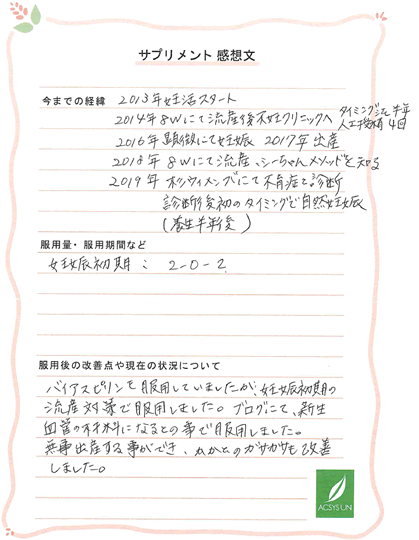 サプリメント 感想文
今までの経緯 2013年妊活スタート
2014年8Wにて流産後不妊クリニックへ タイミング法半年
人工授精4回
2016年 顕微にて妊娠 2017年出産
2018年 8Wにて流産、シーちゃんメソッドを知る
2019年 ポリウィメンズにて不育症と診断
診断後初のタイミングで自然妊娠
(養生半年後)
服用量・服用期間など
妊娠初期：2-0-2
服用後の改善点や現在の状況について
バイアスピリンを服用していましたが、妊娠初期の
流産対策で服用しました。ブログにて、新生
血管の材料になるとの事で服用しました。
無事出産する事ができ、かかとのガサガサも改善
しました。
ACSYSUN